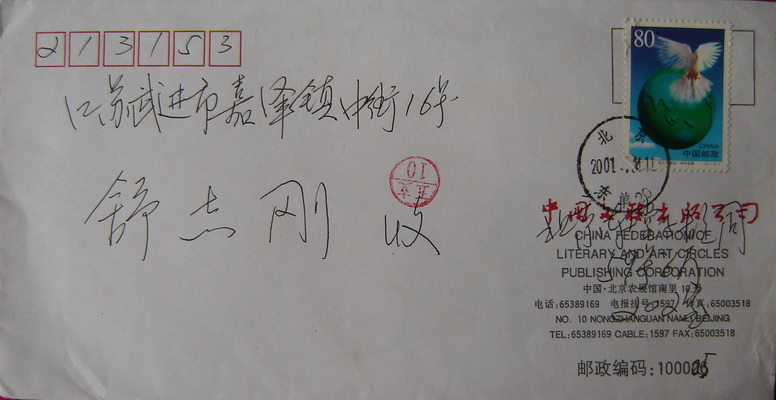 213153
江苏武进市嘉泽镇中街16号
舒志刚 收
80
CHINA
中国邮政
北京
2001
CHINA FEDERATION OF
LITERARY AND ART CIRCLES
PUBLISHING CORPORATION
中国·北京农展馆南里10号
电话:65389169 电报挂号:1597 传真:65003518
NO. 10 NONGZHANGUAN NANLI BEIJING
TEL:65389169 CABLE:1597 FAX:65003518
邮政编码:100025